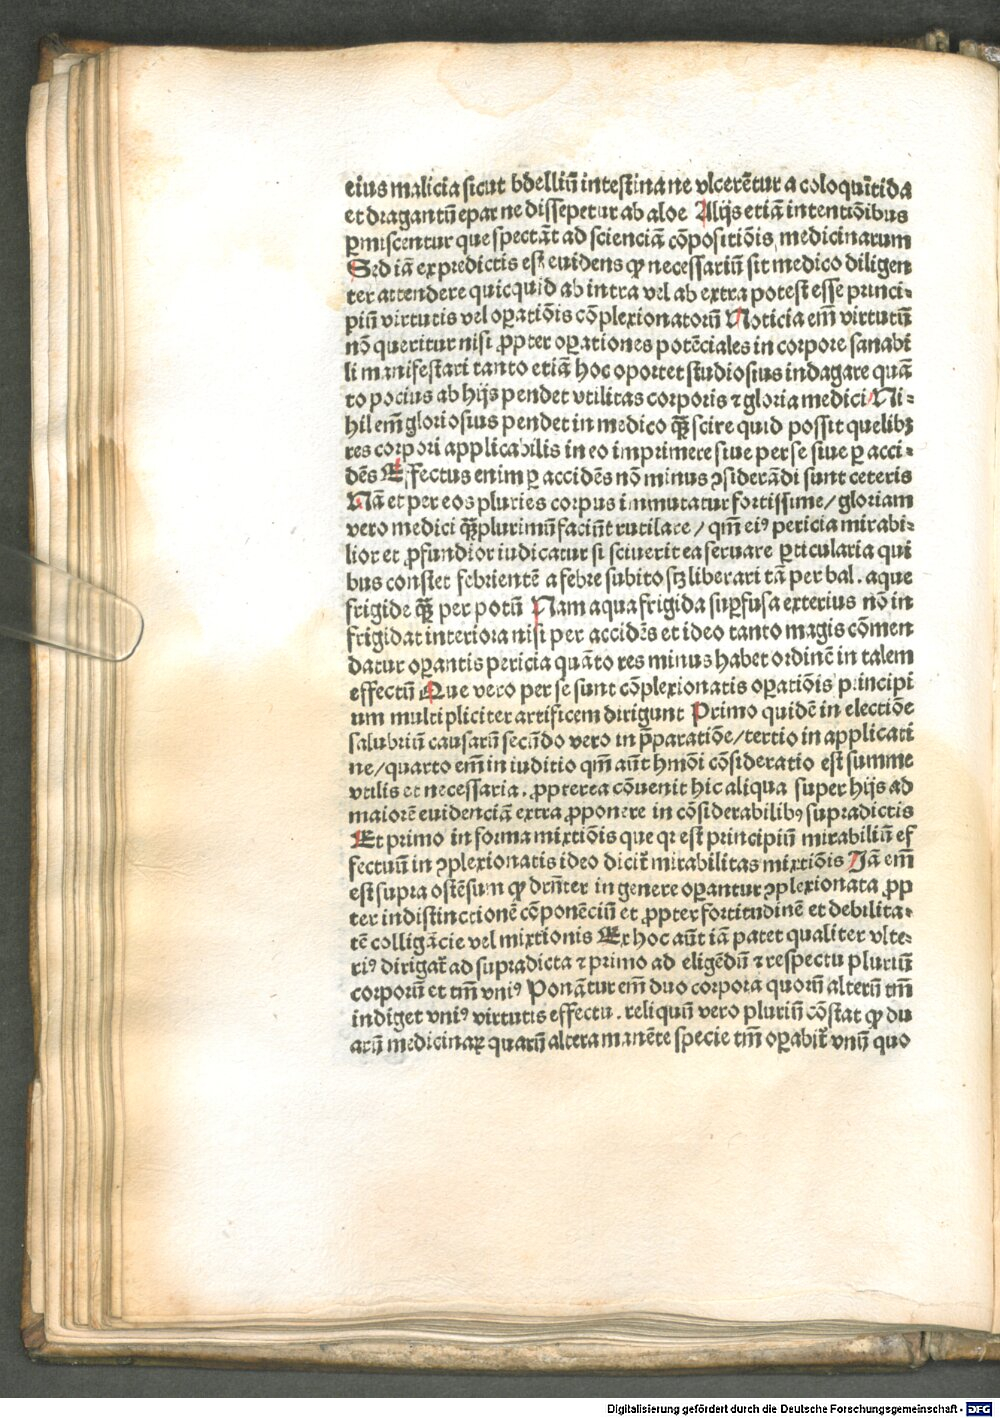 eius malicia sicut bdelliū intestina ne vlcerētur a coloquītida
et dragantū epar ne dissepetur ab aloe Alijs etiā intentiōibus
ꝑmiscentur que spectāt ad scienciā cōpositiōis medicinarum
Sed iā ex predictis est euidens ꝙ necessariū sit medico diligen
ter attendere quicquid ab intra vel ab extra potest esse princi⸗
piū virtutis vel oꝑatiōis cōplexionatorū Noticia em̄ virtutū
nō queritur nisi ꝓpter oꝑationes potēciales in corpore sanabi
li manifestari tanto etiā hoc oportet studiosius indagare quā
to pocius ab hijs pendet vtilitas corporis ⁊ gloria medici Ni⸗
hil em̄ gloriosius pendet in medico qͣꝫ scire quid possit quelibꝫ
res corpori applicabilis in eo imprimere siue per se siue ꝑ acci⸗
dēs Effectus enim ꝑ accidēs nō minus ꝯsiderādi sunt ceteris
Nā et per eos pluries corpus immutatur fortissime/gloriam
vero medici qͣꝫplurimū faciūt rutilare/qm̄ eiꝰ pericia mirabi⸗
lior et ꝓfundior iudicatur si sciuerit ea seruare ꝑticularia qui
bus constet febrientē a febre subito sꝫ liberari tā per bal. aque
frigide qͣꝫ per potū Nam aqua frigida suꝑfusa exterius nō in
frigidat interiora nisi per accidēs et ideo tanto magis cōmen
datur oꝑantis pericia quāto res minus habet ordinē in talem
effectū Que vero per se sunt cōplexionatis oꝑatiōis principi
um multipliciter artificem dirigunt Primo quidē in electiōe
salubriū causarū secūdo vero in p̄paratiōe/tertio in applicati
ne/quarto em̄ in iuditio qm̄ aūt hmōi cōsideratio est summe
vtilis et necessaria. ꝓpterea cōuenit hic aliqua super hijs ad
maiorē euidenciā extra ꝓponere in cōsiderabilibꝰ supradictis
Et primo in forma mixtiōis que qr est principiū mirabiliū ef
fectuū in ꝯplexionatis ideo dicit̄ mirabilitas mixtiōis Jā em̄
est supra ostēsum ꝙ drn̄ter in genere oꝑantur ꝯplexionata ꝓp
ter indistinctionē cōponēciū et ꝓpter fortitudinē et debilita⸗
tē colligācie vel mixtionis Ex hoc aūt iā patet qualiter vlte⸗
riꝰ dirigat̄ ad supradicta ⁊ primo ad eligēdū ⁊ respectu pluriū
corporū et tm̄ vniꝰ Ponātur em̄ duo corpora quorū alterū tm̄
indiget vniꝰ virtutis effectu. reliquū vero pluriū cōstat ꝙ du
arū medicinaꝝ quarū altera manēte specie tm̄ oꝑabit̄ vnū quo
Digitalisierung gefördert durch die Deutsche Forschungsgemeinschaft - DFG